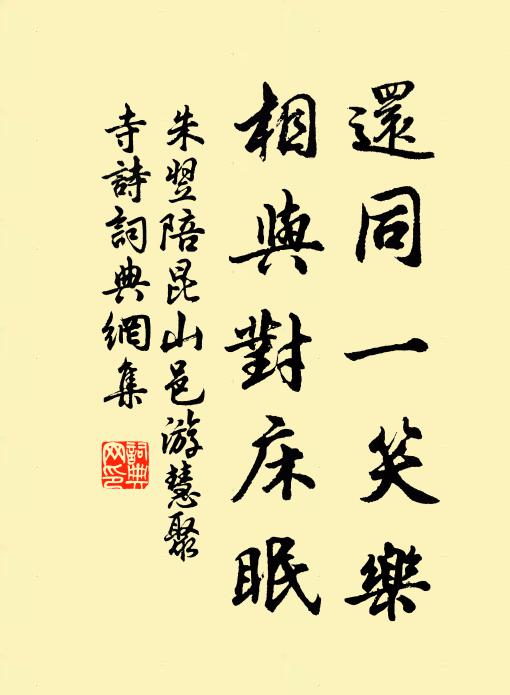 還同一笑樂
相與對床眠
朱翌陪昆山邑游慧聚
寺詩詞典網集
詞典
网印